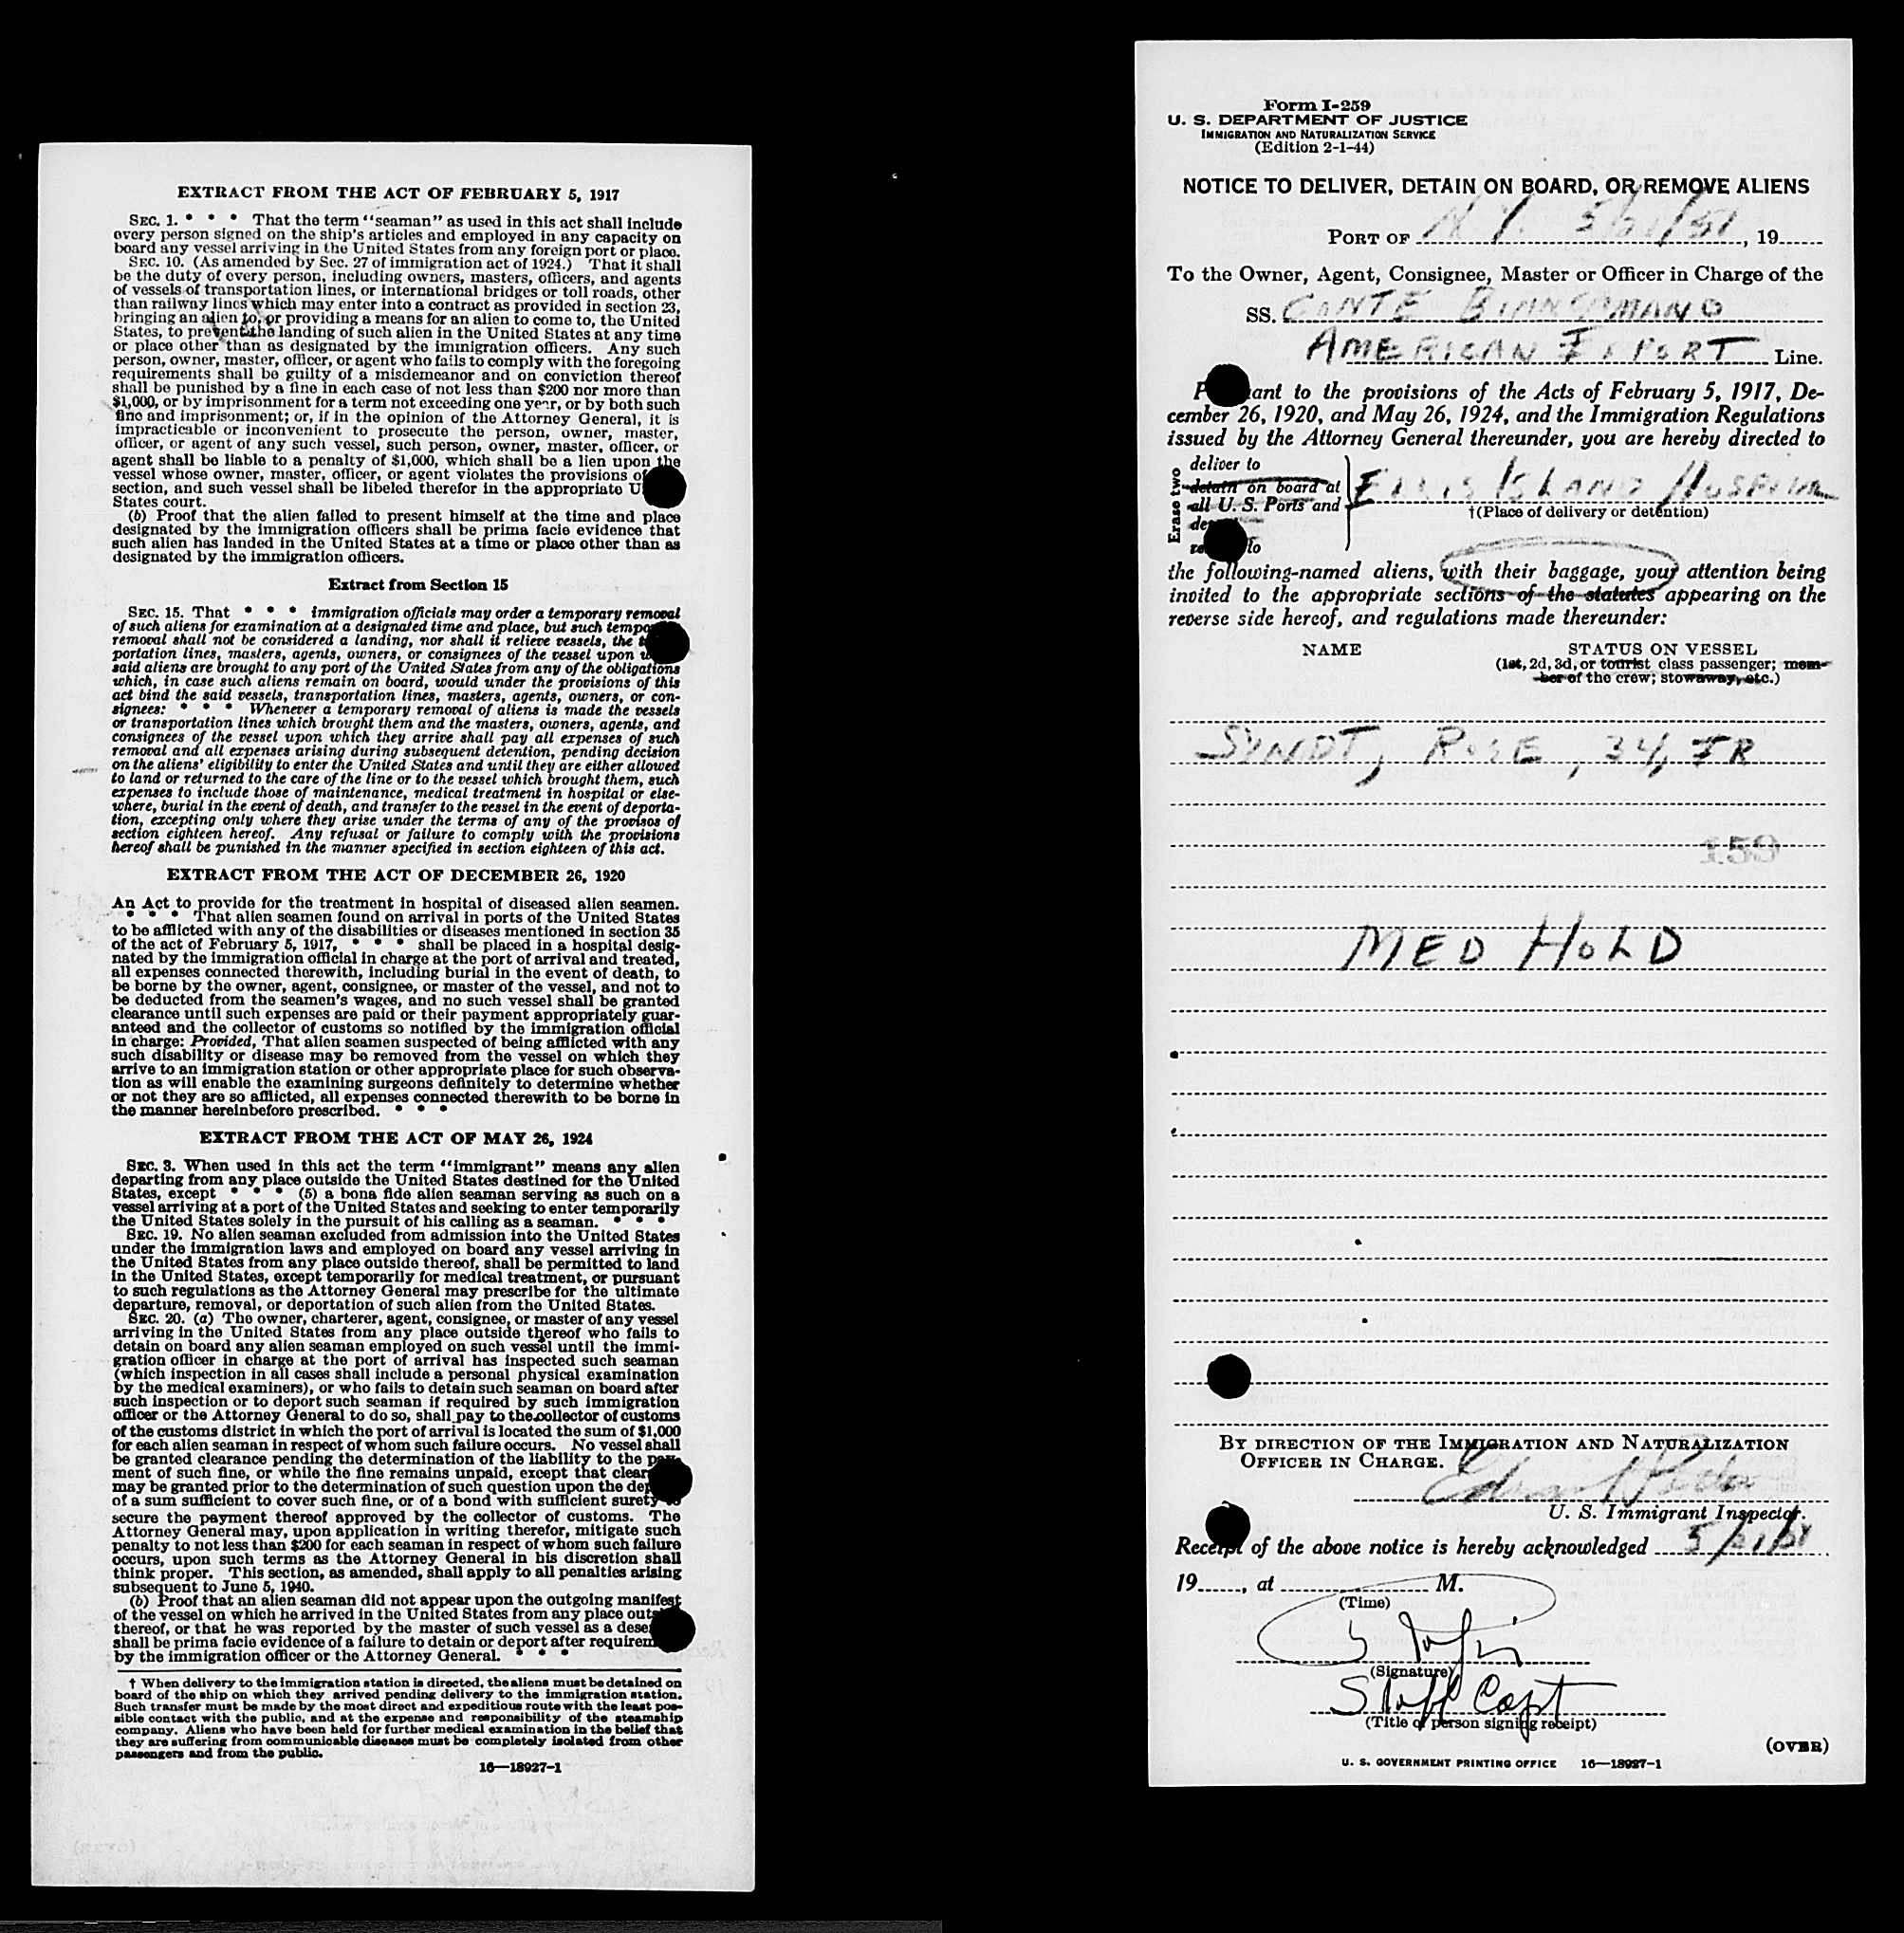 EXTRACT FROM THE ACT OF FEBRUARY 5, 1917
SEC. 1. * * * That the term "seaman" as used in this act shall include
every person signed on the ship's articles and employed in any capacity on
board any vessel arriving in the United States from any foreign port or place.
SEC. 10. (As amended by Sec. 27 of immigration act of 1924.) That it shall
be the duty of every person, including owners, masters, officers, and agents
of vessels of transportation lines, or international bridges or toll roads, other
than railway lines which may enter into a contract as provided in section 23,
bringing an alien to, or providing a means for an alien to come to, the United
States, to prevent the landing of such alien in the United States at any time
or place other than as designated by the immigration officers. Any such
person, owner, master, officer, or agent who fails to comply with the foregoing
requirements shall be guilty of a misdemeanor and on conviction thereof
shall be punished by a fine in each case of not less than $200 nor more than
$1,000, or by imprisonment for a term not exceeding one year, or by both such
fine and imprisonment; or, if in the opinion of the Attorney General, it is
impracticable or inconvenient to prosecute the person, owner, master,
officer, or agent of any such vessel, such person, owner, master, officer, or
agent shall be liable to a penalty of $1,000, which shall be a lien upon the
vessel whose owner, master, officer, or agent violates the provisions of
section, and such vessel shall be libeled therefor in the appropriate U
States court.
(b) Proof that the alien failed to present himself at the time and place
designated by the immigration officers shall be prima facie evidence that
such alien has landed in the United States at a time or place other than as
designated by the immigration officers.
Extract from Section 15
SEC. 15. That * * * immigration officials may order a temporary removal
of such aliens for examination at a designated time and place, but such tempo
removal shall not be considered a landing, nor shall it relieve vessels, the t
portation lines, masters, agents, owners, or consignees of the vessel upon w
said aliens are brought to any port of the United States from any of the obligations
which, in case such aliens remain on board, would under the provisions of this
act bind the said vessels, transportation lines, masters, agents, owners, or con-
signees: * * * Whenever a temporary removal of aliens is made the vessels
or transportation lines which brought them and the masters, owners, agents, and
consignees of the vessel upon which they arrive shall pay all expenses of such
removal and all expenses arising during subsequent detention, pending decision
on the aliens' eligibility to enter the United States and until they are either allowed
to land or returned to the care of the line or to the vessel which brought them, such
expenses to include those of maintenance, medical treatment in hospital or else-
where, burial in the event of death, and transfer to the vessel in the event of deporta-
tion, excepting only where they arise under the terms of any of the provisos of
section eighteen hereof. Any refusal or failure to comply with the provisions
hereof shall be punished in the manner specified in section eighteen of this act.
EXTRACT FROM THE ACT OF DECEMBER 26, 1920
An Act to provide for the treatment in hospital of diseased alien seamen.
* * * That alien seamen found on arrival in ports of the United States
to be afflicted with any of the disabilities or diseases mentioned in section 35
of the act of February 5, 1917, * * * shall be placed in a hospital desig-
nated by the immigration official in charge at the port of arrival and treated,
all expenses connected therewith, including burial in the event of death, to
be borne by the owner, agent, consignee, or master of the vessel, and not to
be deducted from the seamen's wages, and no such vessel shall be granted
clearance until such expenses are paid or their payment appropriately guar-
anteed and the collector of customs so notified by the immigration official
in charge: Provided, That alien seamen suspected of being afflicted with any
such disability or disease may be removed from the vessel on which they
arrive to an immigration station or other appropriate place for such observa-
tion as will enable the examining surgeons definitely to determine whether
or not they are so afflicted, all expenses connected therewith to be borne in
the manner hereinbefore prescribed. * * *
EXTRACT FROM THE ACT OF MAY 26, 1924
SEC. 3. When used in this act the term "immigrant" means any alien
departing from any place outside the United States destined for the United
States, except * * * (5) a bona fide alien seaman serving as such on a
vessel arriving at a port of the United States and seeking to enter temporarily
the United States solely in the pursuit of his calling as a seaman. * * *
SEC. 19. No alien seaman excluded from admission into the United States
under the immigration laws and employed on board any vessel arriving in
the United States from any place outside thereof, shall be permitted to land
in the United States, except temporarily for medical treatment, or pursuant
to such regulations as the Attorney General may prescribe for the ultimate
departure, removal, or deportation of such alien from the United States.
SEC. 20. (a) The owner, charterer, agent, consignee, or master of any vessel
arriving in the United States from any place outside thereof who fails to
detain on board any alien seaman employed on such vessel until the immi-
gration officer in charge at the port of arrival has inspected such seaman
(which inspection in all cases shall include a personal physical examination
by the medical examiners), or who fails to detain such seaman on board after
such inspection or to deport such seaman if required by such immigration
officer or the Attorney General to do so, shall pay to the collector of customs
of the customs district in which the port of arrival is located the sum of $1,000
for each alien seaman in respect of whom such failure occurs. No vessel shall
be granted clearance pending the determination of the liability to the pay-
ment of such fine, or while the fine remains unpaid, except that clear
may be granted prior to the determination of such question upon the dep
of a sum sufficient to cover such fine, or of a bond with sufficient surety to
secure the payment thereof approved by the collector of customs. The
Attorney General may, upon application in writing therefor, mitigate such
penalty to not less than $200 for each seaman in respect of whom such failure
occurs, upon such terms as the Attorney General in his discretion shall
think proper. This section, as amended, shall apply to all penalties arising
subsequent to June 5, 1940.
(b) Proof that an alien seaman did not appear upon the outgoing manifest
of the vessel on which he arrived in the United States from any place outs
thereof, or that he was reported by the master of such vessel as a dese
shall be prima facie evidence of a failure to detain or deport after requirem
by the immigration officer or the Attorney General. * * *
† When delivery to the immigration station is directed, the aliens must be detained on
board of the ship on which they arrived pending delivery to the immigration station.
Such transfer must be made by the most direct and expeditious route with the least pos-
sible contact with the public, and at the expense and responsibility of the steamship
company. Aliens who have been held for further medical examination in the belief that
they are suffering from communicable diseases must be completely isolated from other
passengers and from the public.
16—18927-1
Form I-259
U. S. DEPARTMENT OF JUSTICE
IMMIGRATION AND NATURALIZATION SERVICE
(Edition 2-1-44)
NOTICE TO DELIVER, DETAIN ON BOARD, OR REMOVE ALIENS
PORT OF N.Y. 5/21/51, 19
To the Owner, Agent, Consignee, Master or Officer in Charge of the
SS. CONTE BIANCAMANO
AMERICAN EXPORT Line.
P ant to the provisions of the Acts of February 5, 1917, De-
cember 26, 1920, and May 26, 1924, and the Immigration Regulations
issued by the Attorney General thereunder, you are hereby directed to
Erase two
deliver to
detain on board at
all U. S. Ports and
de
re to
ELLIS ISLAND HOSPITAL
†(Place of delivery or detention)
the following-named aliens, with their baggage, your attention being
invited to the appropriate sections of the statutes appearing on the
reverse side hereof, and regulations made thereunder:
NAME
STATUS ON VESSEL
(1st, 2d, 3d, or tourist class passenger; mem-
ber of the crew; stowaway, etc.)
SYNDT, ROSE, 34, IR
159
MED HOLD
BY DIRECTION OF THE IMMIGRATION AND NATURALIZATION
OFFICER IN CHARGE.
U. S. Immigrant Inspector.
Receipt of the above notice is hereby acknowledged 5/21/51
19, at M.
(Time)
(Signature)
Staff Capt
(Title of person signing receipt)
(OVER)
U. S. GOVERNMENT PRINTING OFFICE 16—18927-1